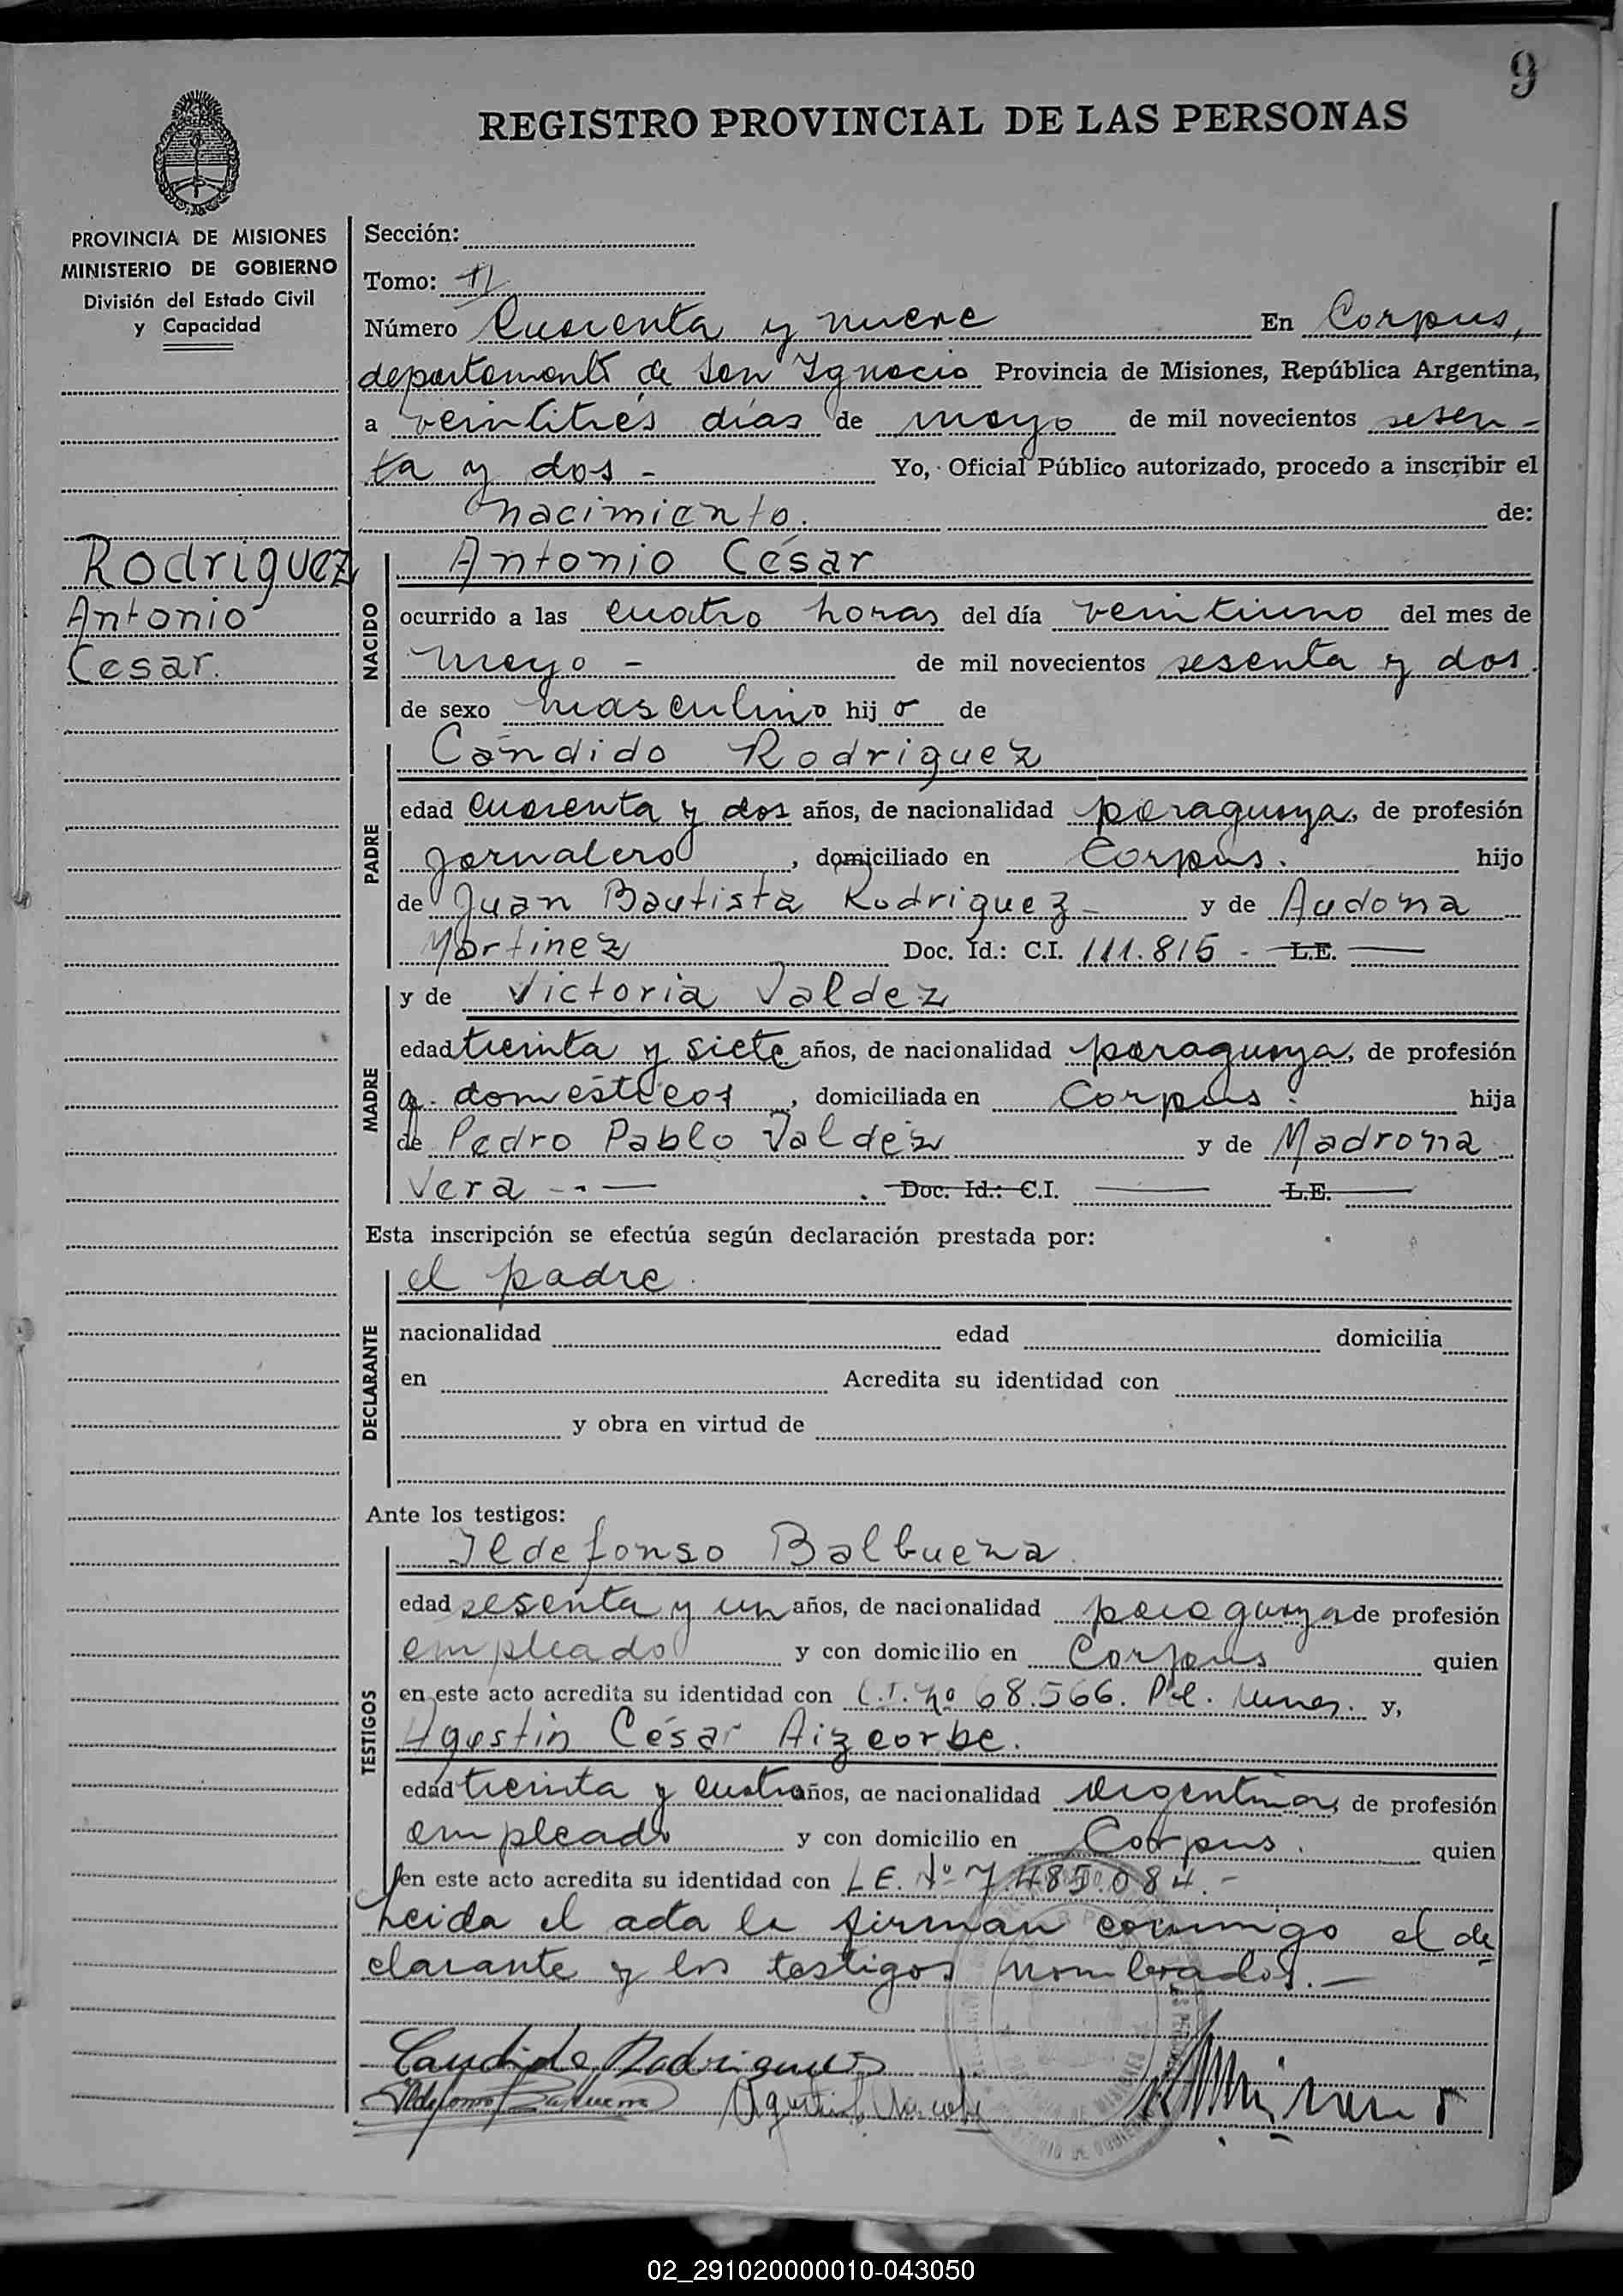 9
REGISTRO PROVINCIAL DE LAS PERSONAS
PROVINCIA DE MISIONES
MINISTERIO DE GOBIERNO
División del Estado Civil
y Capacidad
Rodriguez
Antonio
Cesar.
Sección:
Tomo: II
Número Cuarenta y nueve En Corpus,
departamento de San Ignacio Provincia de Misiones, República Argentina,
a veintitrés días de mayo de mil novecientos sesen-
ta y dos - Yo, Oficial Público autorizado, procedo a inscribir el
nacimiento. de:
NACIDO
Antonio César
ocurrido a las cuatro horas del día veintiuno del mes de
mayo - de mil novecientos sesenta y dos.
de sexo masculino hijo de
PADRE
Cándido Rodriguez
edad cuarenta y dos años, de nacionalidad paraguaya, de profesión
jornalero, domiciliado en Corpus. hijo
de Juan Bautista Rodriguez - y de Audona
Martinez Doc. Id.: C.I. 111.815 - L.E.
MADRE
y de Victoria Valdez
edad treinta y siete años, de nacionalidad paraguaya, de profesión
q. domésticos, domiciliada en Corpus. hija
de Pedro Pablo Valdez y de Madrona
Vera - . - Doc. Id.: C.I. L.E.
Esta inscripción se efectúa según declaración prestada por:
DECLARANTE
el padre.
nacionalidad edad domicilia
en Acredita su identidad con
y obra en virtud de
Ante los testigos:
TESTIGOS
Ildefonso Balbuena.
edad sesenta y un años, de nacionalidad paraguaya de profesión
empleado y con domicilio en Corpus quien
en este acto acredita su identidad con C.I. Nº 68.566. Pol. y,
Agustin César Aizcorbe.
edad treinta y cuatro años, de nacionalidad argentina, de profesión
empleado y con domicilio en Corpus. quien
en este acto acredita su identidad con L.E. Nº 7.485.084.-
Leida el acta la firman conmigo el de
clarante y los testigos nombrados.-
Candido Rodrigues
Ildefonso Balbuena Agustin Aizcorbe
02_291020000010-043050